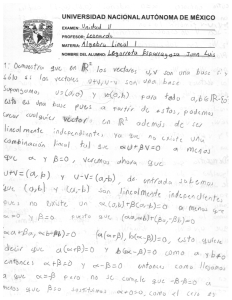 UNIVERSIDAD NACIONAL AUTÓNOMA DE MÉXICO
EXAMEN: Unidad II
PROFESOR: Leonardo
MATERIA: Algebra Lineal I
NOMBRE DEL ALUMNO: Legarreta Luis
1: Demuestra que en R² los vectores u,v son una base si y
sólo si los vectores u+v, u-v son una base
Supongamos u=(a,0) y v=(0,b) para todo a,b∈R-
esta es una base pues a partir de estos, podemos
crear cualquier vector en R² además de ser
linealmente independientes, ya que no existe una
combinación lineal tal que αu+βv=0 a menos
que α y β=0, veremos ahora que
u+v=(a,b) y u-v=(a,-b), de entrada sabemos
que (a,b) y (a,-b) son linealmente independientes
pues no existe un a menos que
α=0 y β=0 puesto que (αa,αb)+(βa,-βb)=0
(a(α+β), b(α-β))=0, esto quiere
decir que a(α+β)=0 y b(α-β)=0 como a y b≠0
entonces α+β=0 y α-β=0 entonces como llegamos
a que α=β pero no se cumple que -β+α=0 a
menos que β=0 α=0, como el